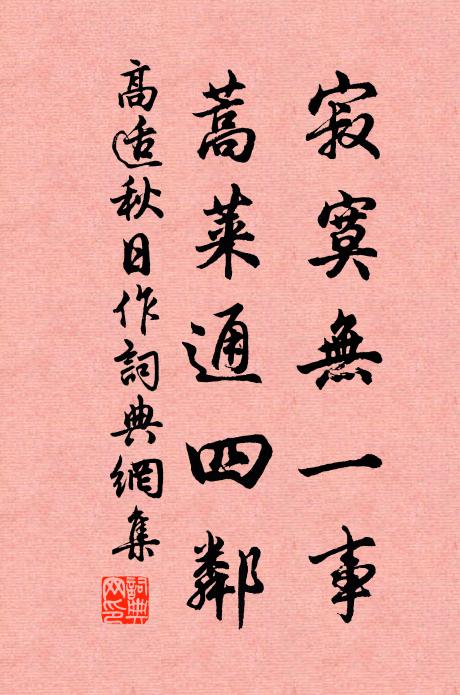 寂寞無一事
蒿萊通四鄰
高适秋日作詞典網集
詞典網印